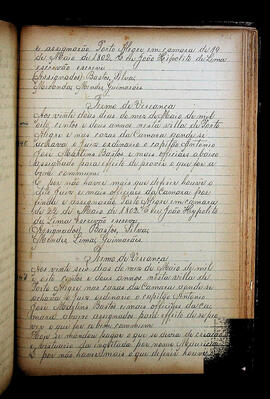 e assignarão Porto Alegre em camara de 19
de Maio de 1802. E eu João Hipolito de Lima
escrivão escrevi.
(Assignados) Bastos, Silva,
Mendes Guimarães.
Termo de Vereança
Aos vinte dois dias do mes de Maio de mil
oito centos e dois annos nesta villa de Porto
Alegre e nas casas da Camara donde se
achava o Juiz ordinario e capitão Antonio
José Martins Bastos e mais officiais abaixo
assignado para effeito de prover o que for a
bem commum.
E por não haver mais que deferir houve o
dito Juiz e mais officiais da Camara por
findo e assignarão Porto Alegre em camara
de 22 de Maio de 1802. E eu João Hypolito
de Lima escrivão escrevi.
(Assignados) Bastos, Silva,
Mendes, Lima, Guimarães.
Termo de Vereança
Aos vinte seis dias do mes de Maio de mil
oito centos e dois annos nesta villa de
Porto Alegre nas casas da Camara donde se
achava o Juiz ordinario o capitão Antonio
José Martins Bastos e mais officiais da ca-
mara abaixo assignados para effeito de se pro-
ver o que for a bem commum.
E por não haver mais o que deferir houve